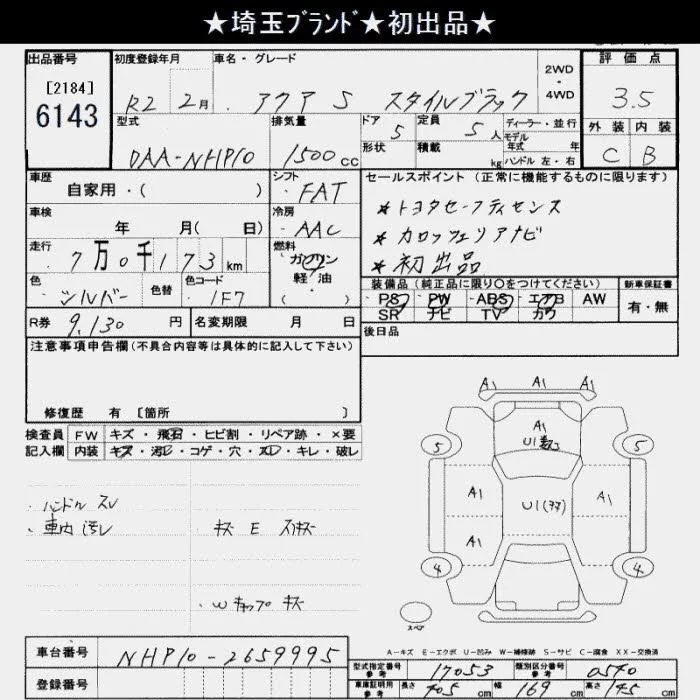 ★埼玉ﾌﾞﾗﾝﾄﾞ★初出品★
出品番号
[2184]
6143
初度登録年月
R2 2月
車名・グレード
アクア S スタイルブラック
2WD
・
4WD
評価点
3.5
外装 内装
C B
型式
DAA-NHP10
排気量
1500cc
ドア
5
形状
定員
5人
積載
kg
ディーラー・並行
モデル
年式 年
ハンドル 左・右
車歴
自家用・( )
シフト
・FAT
セールスポイント (正常に機能するものに限ります)
* トヨタセーフティセンス
* カロッツェリアナビ
* 初出品
車検
年 月( 日)
冷房
・AAC
走行
7万0千173km
燃料
ガソリン
軽・油
( )
色
・シルバー
色替
色コード
1F7
装備品 (純正品に限り○をつけてください)
PS PW ABS エアB AW
SR ナビ TV カワ
新車保証書
有・無
R券 9,130 円
名変期限 月 日
後日品
注意事項申告欄(不具合内容等は具体的に記入して下さい)
修復歴 有 [箇所 ]
検査員
記入欄
FW キズ・飛石・ヒビ割・リペア跡・×要
内装 キズ・汚レ・コゲ・穴・スレ・キレ・破レ
・ハンドル スレ
・車内 汚レ
キズ E スリキズ
・Wキャップ キズ
A1 A1 A1
A1
U1
5 5
A1 U1 A1
A1
4 4
スペア
A-キズ E-エクボ U-凹み W-補修跡 S-サビ C-腐食 XX-交換済
車台番号
NHP10-2659995
登録番号
型式指定番号
参考
17053
類別区分番号
参考
0540
車庫証明用
参考
長さ 405cm 幅 169cm 高さ 145cm